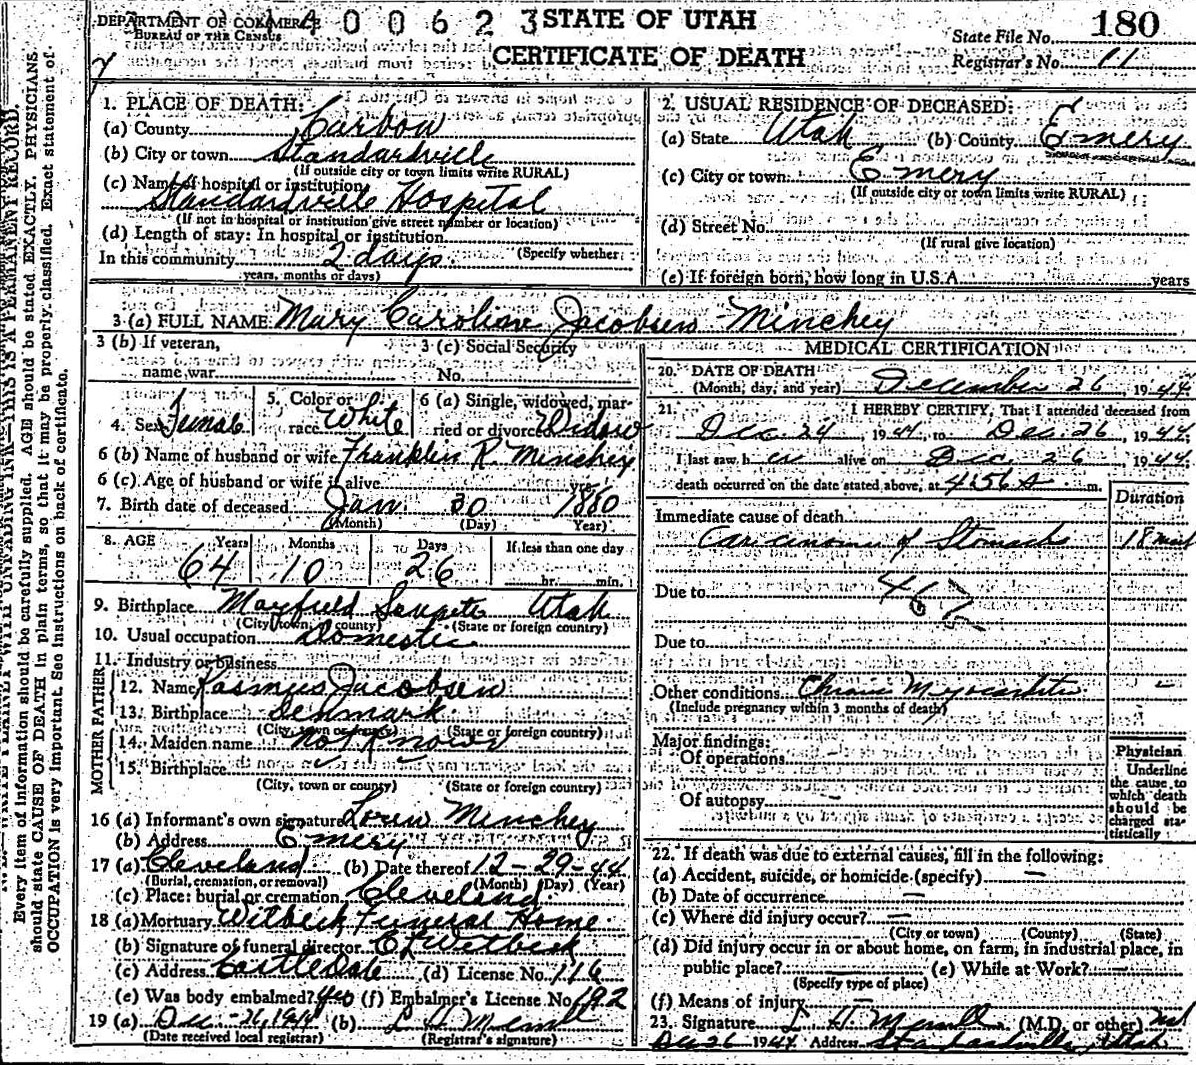 DEPARTMENT OF COMMERCE
BUREAU OF THE CENSUS
400623
STATE OF UTAH
CERTIFICATE OF DEATH
State File No. 180
Registrar's No. 11
1. PLACE OF DEATH:
(a) County Carbon
(b) City or town Standardville
(If outside city or town limits write RURAL)
(c) Name of hospital or institution
Standardville Hospital
(If not in hospital or institution give street number or location)
(d) Length of stay: In hospital or institution
In this community 2 days (Specify whether
years, months or days)
2. USUAL RESIDENCE OF DECEASED:
(a) State Utah (b) County Emery
(c) City or town Emery
(If outside city or town limits write RURAL)
(d) Street No.
(If rural give location)
(e) If foreign born, how long in U.S.A. years
3 (a) FULL NAME Mary Caroline Jacobsen Minchey
3 (b) If veteran, name war
3 (c) Social Security No.
4. Sex Female
5. Color or race White
6 (a) Single, widowed, married or divorced Widow
6 (b) Name of husband or wife Franklin R. Minchey
6 (c) Age of husband or wife if alive years
7. Birth date of deceased Jan 30 1880
(Month) (Day) Year)
8. AGE Years Months Days If less than one day
64 10 26 hr. min.
9. Birthplace Mayfield Sanpete Utah
(City, town, county) (State or foreign country)
10. Usual occupation Domestic
11. Industry or business
FATHER
12. Name Rasmus Jacobsen
13. Birthplace Denmark
(City, town or county) (State or foreign country)
MOTHER
14. Maiden name not known
15. Birthplace
(City, town or county) (State or foreign country)
16 (a) Informant's own signature Loren Minchey
(b) Address Emery
17 (a) Cleveland (b) Date thereof 12-29-44
(Burial, cremation, or removal) (Month) (Day) (Year)
(c) Place: burial or cremation Cleveland
18 (a) Mortuary Witbeck Funeral Home
(b) Signature of funeral director C L Witbeck
(c) Address Castle Dale (d) License No. 116
(e) Was body embalmed? Yes (f) Embalmer's License No. 192
19 (a) Dec-26, 1944 (b) L H Merrill
(Date received local registrar) (Registrar's signature)
MEDICAL CERTIFICATION
20. DATE OF DEATH
(Month, day, and year) December 26, 1944
21. I HEREBY CERTIFY, That I attended deceased from
Dec. 24, 1944, to Dec. 26, 1944
I last saw her alive on Dec 26, 1944
death occurred on the date stated above, at 4:56 A m.
Duration
Immediate cause of death
Carcinoma of Stomach 18 mos
Due to
Due to
Other conditions Chronic Myocarditis
(Include pregnancy within 3 months of death)
Major findings:
Of operations
Of autopsy
Physician
Underline
the cause to
which death
should be
charged sta-
tistically
22. If death was due to external causes, fill in the following:
(a) Accident, suicide, or homicide (specify)
(b) Date of occurrence
(c) Where did injury occur?
(City or town) (County) (State)
(d) Did injury occur in or about home, on farm, in industrial place, in
public place? (e) While at Work?
(Specify type of place)
(f) Means of injury
23. Signature L H Merrill (M.D. or other) md
Dec 26 1944 Address Standardville, Utah
Every item of information should be carefully supplied. AGE should be stated EXACTLY. PHYSICIANS
should state CAUSE OF DEATH in plain terms, so that it may be properly classified. Exact statement of
OCCUPATION is very important. See instructions on back of certificate.